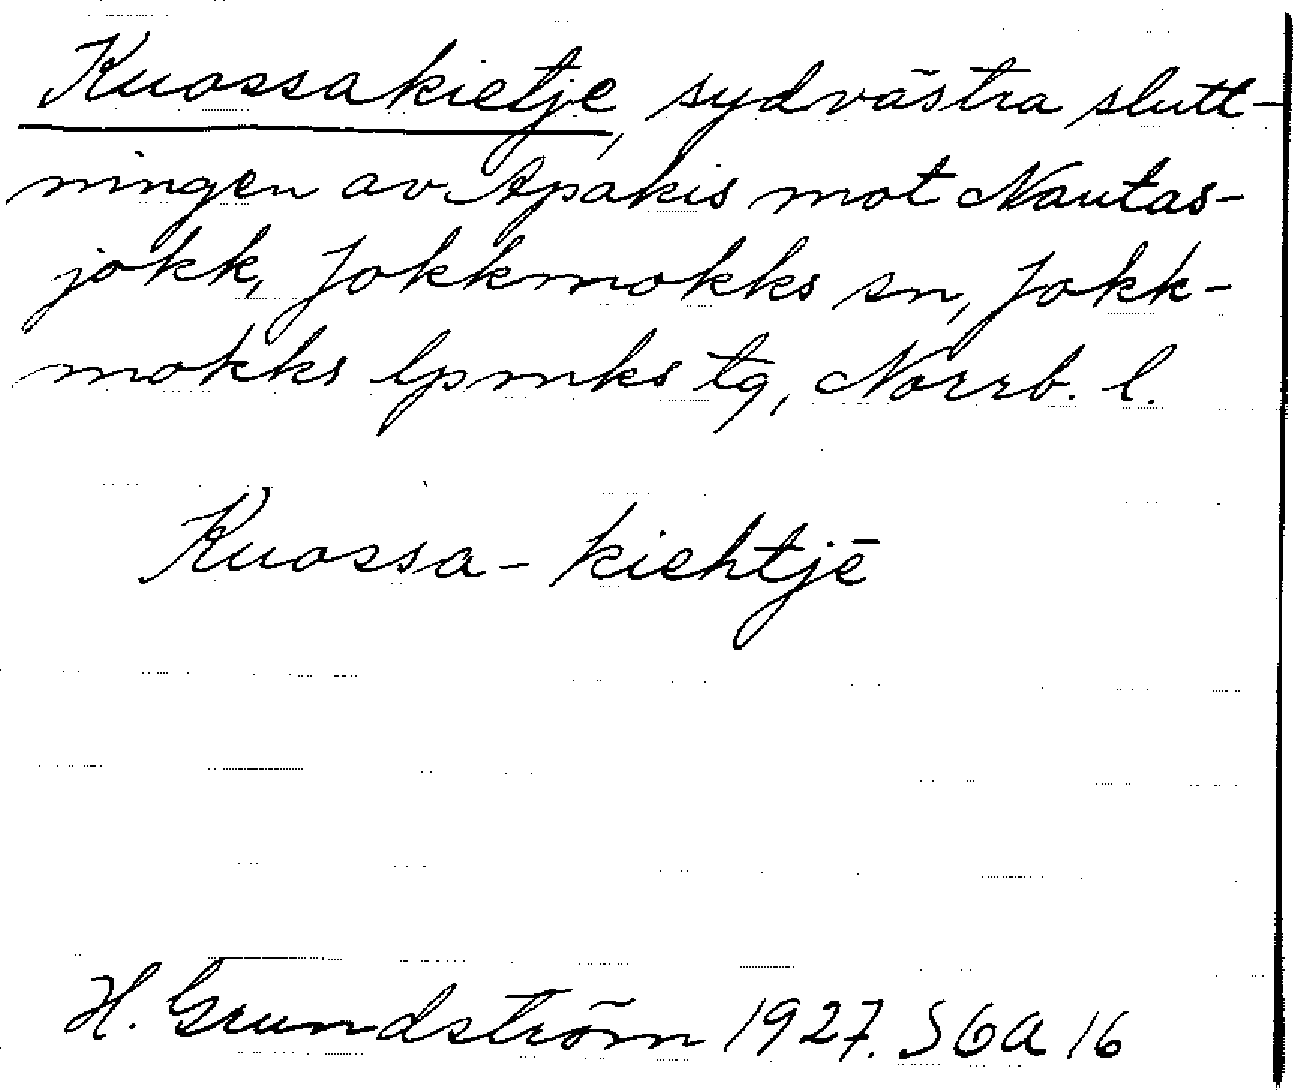 Kuossakietje, sydvästra slutt-
ningen av Apakis mot Nautas-
jokk, Jokkmokks sn, Jokk-
mokks lpmks tg, Norrb. l.
Kuossa-kiehtjē
H. Grundström 1927. S6a 16